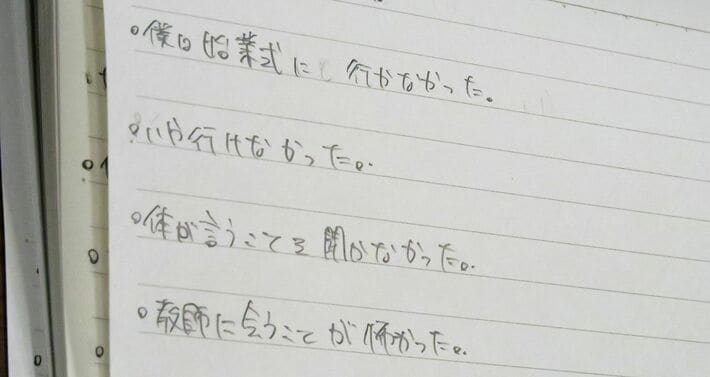 。僕は始業式に行かなかった。
。いや行けなかった。
。体が言うことを聞かなかった。
。教師に会うことが怖かった。